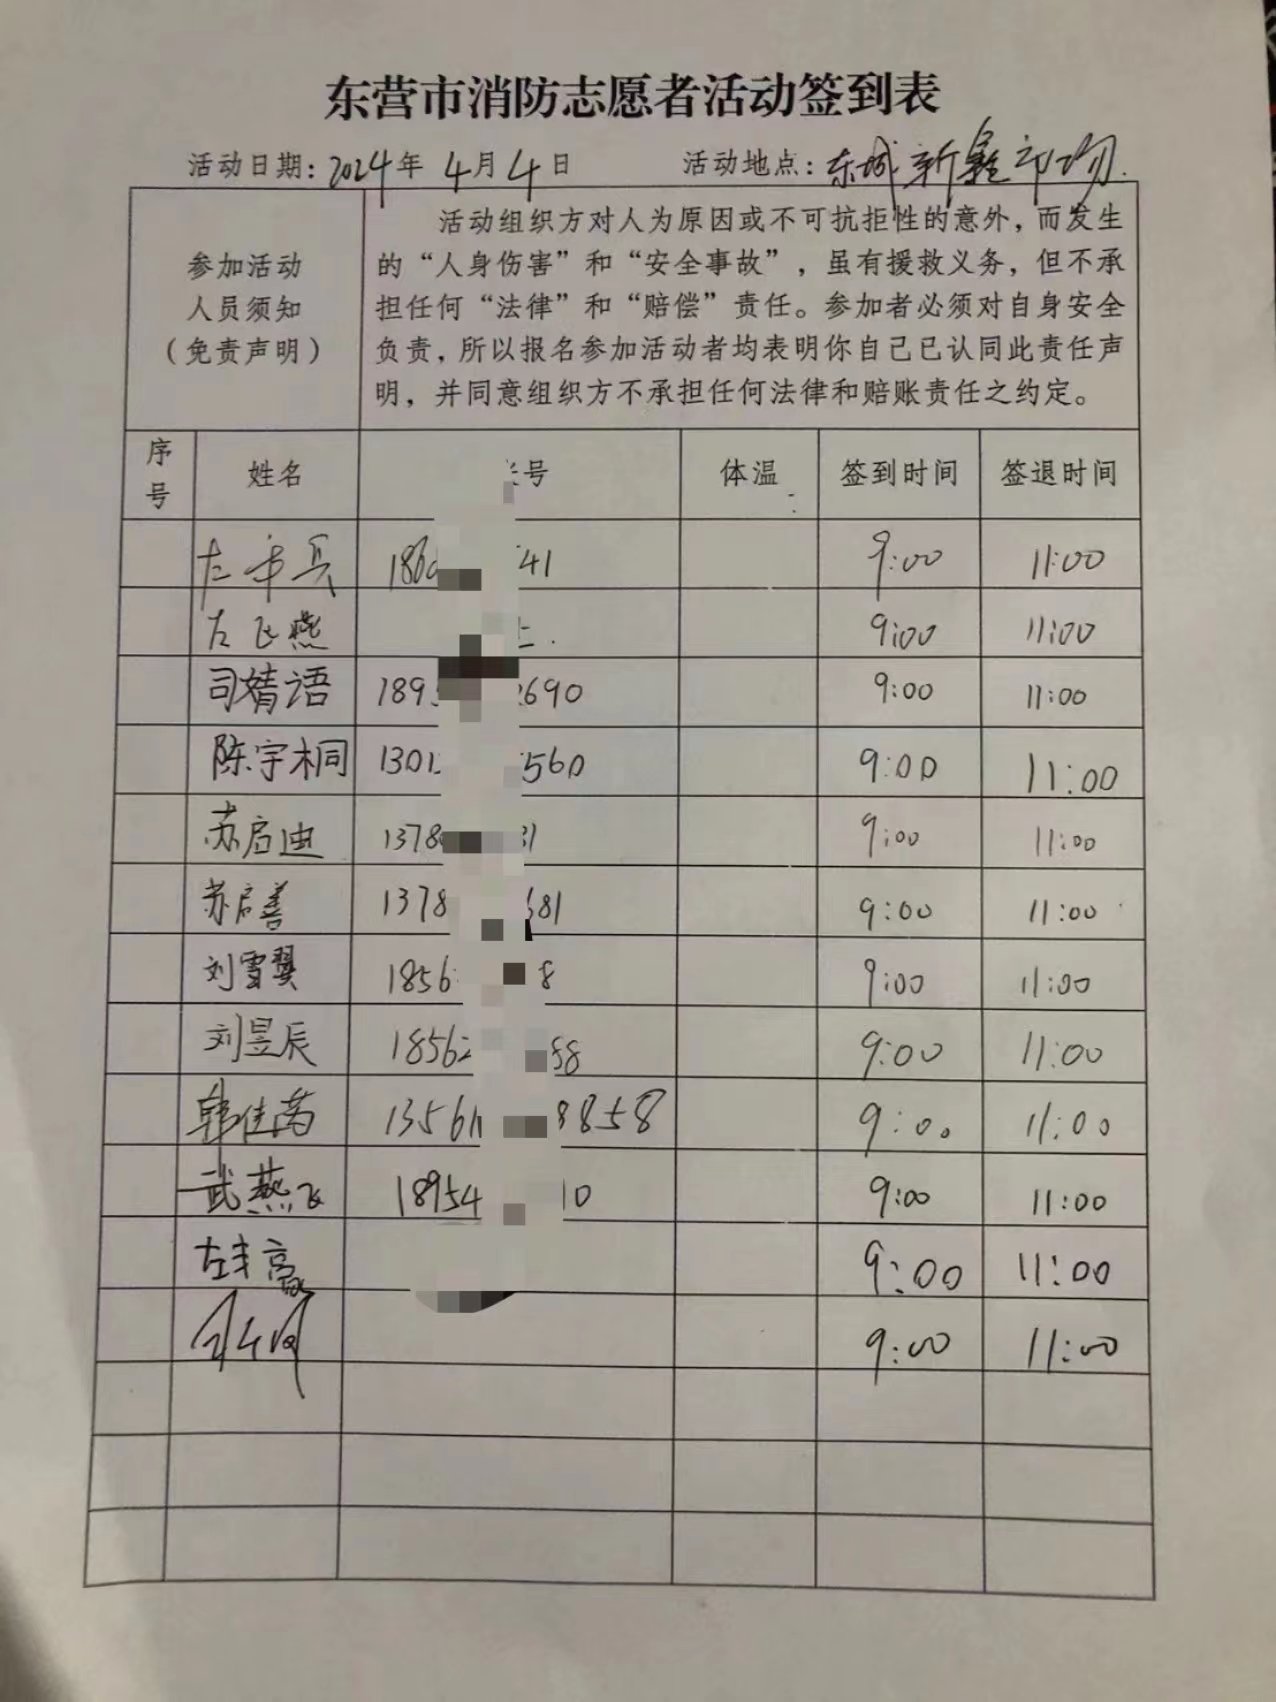 东营市消防志愿者活动签到表
活动日期：2024年 4月 4日 活动地点：东城新鑫市场.
参加活动
人员须知
（免责声明）
活动组织方对人为原因或不可抗拒性的意外，而发生
的“人身伤害”和“安全事故”，虽有援救义务，但不承
担任何“法律”和“赔偿”责任。参加者必须对自身安全
负责，所以报名参加活动者均表明你自己已认同此责任声
明，并同意组织方不承担任何法律和赔账责任之约定。
序号 姓名 号 体温 签到时间 签退时间
左 兵 186 41 9:00 11:00
左飞燕 上. 9:00 11:00
司婧语 189 690 9:00 11:00
陈宇桐 1301 560 9:00 11:00
苏启迪 1378 31 9:00 11:00
苏启善 1378 681 9:00 11:00
刘雪翼 1856 8 9:00 11:00
刘昱辰 1856 88 9:00 11:00
韩佳芮 13561 8858 9:00 11:00
武燕飞 18954 10 9:00 11:00
左丰嬴 9:00 11:00
9:00 11:00